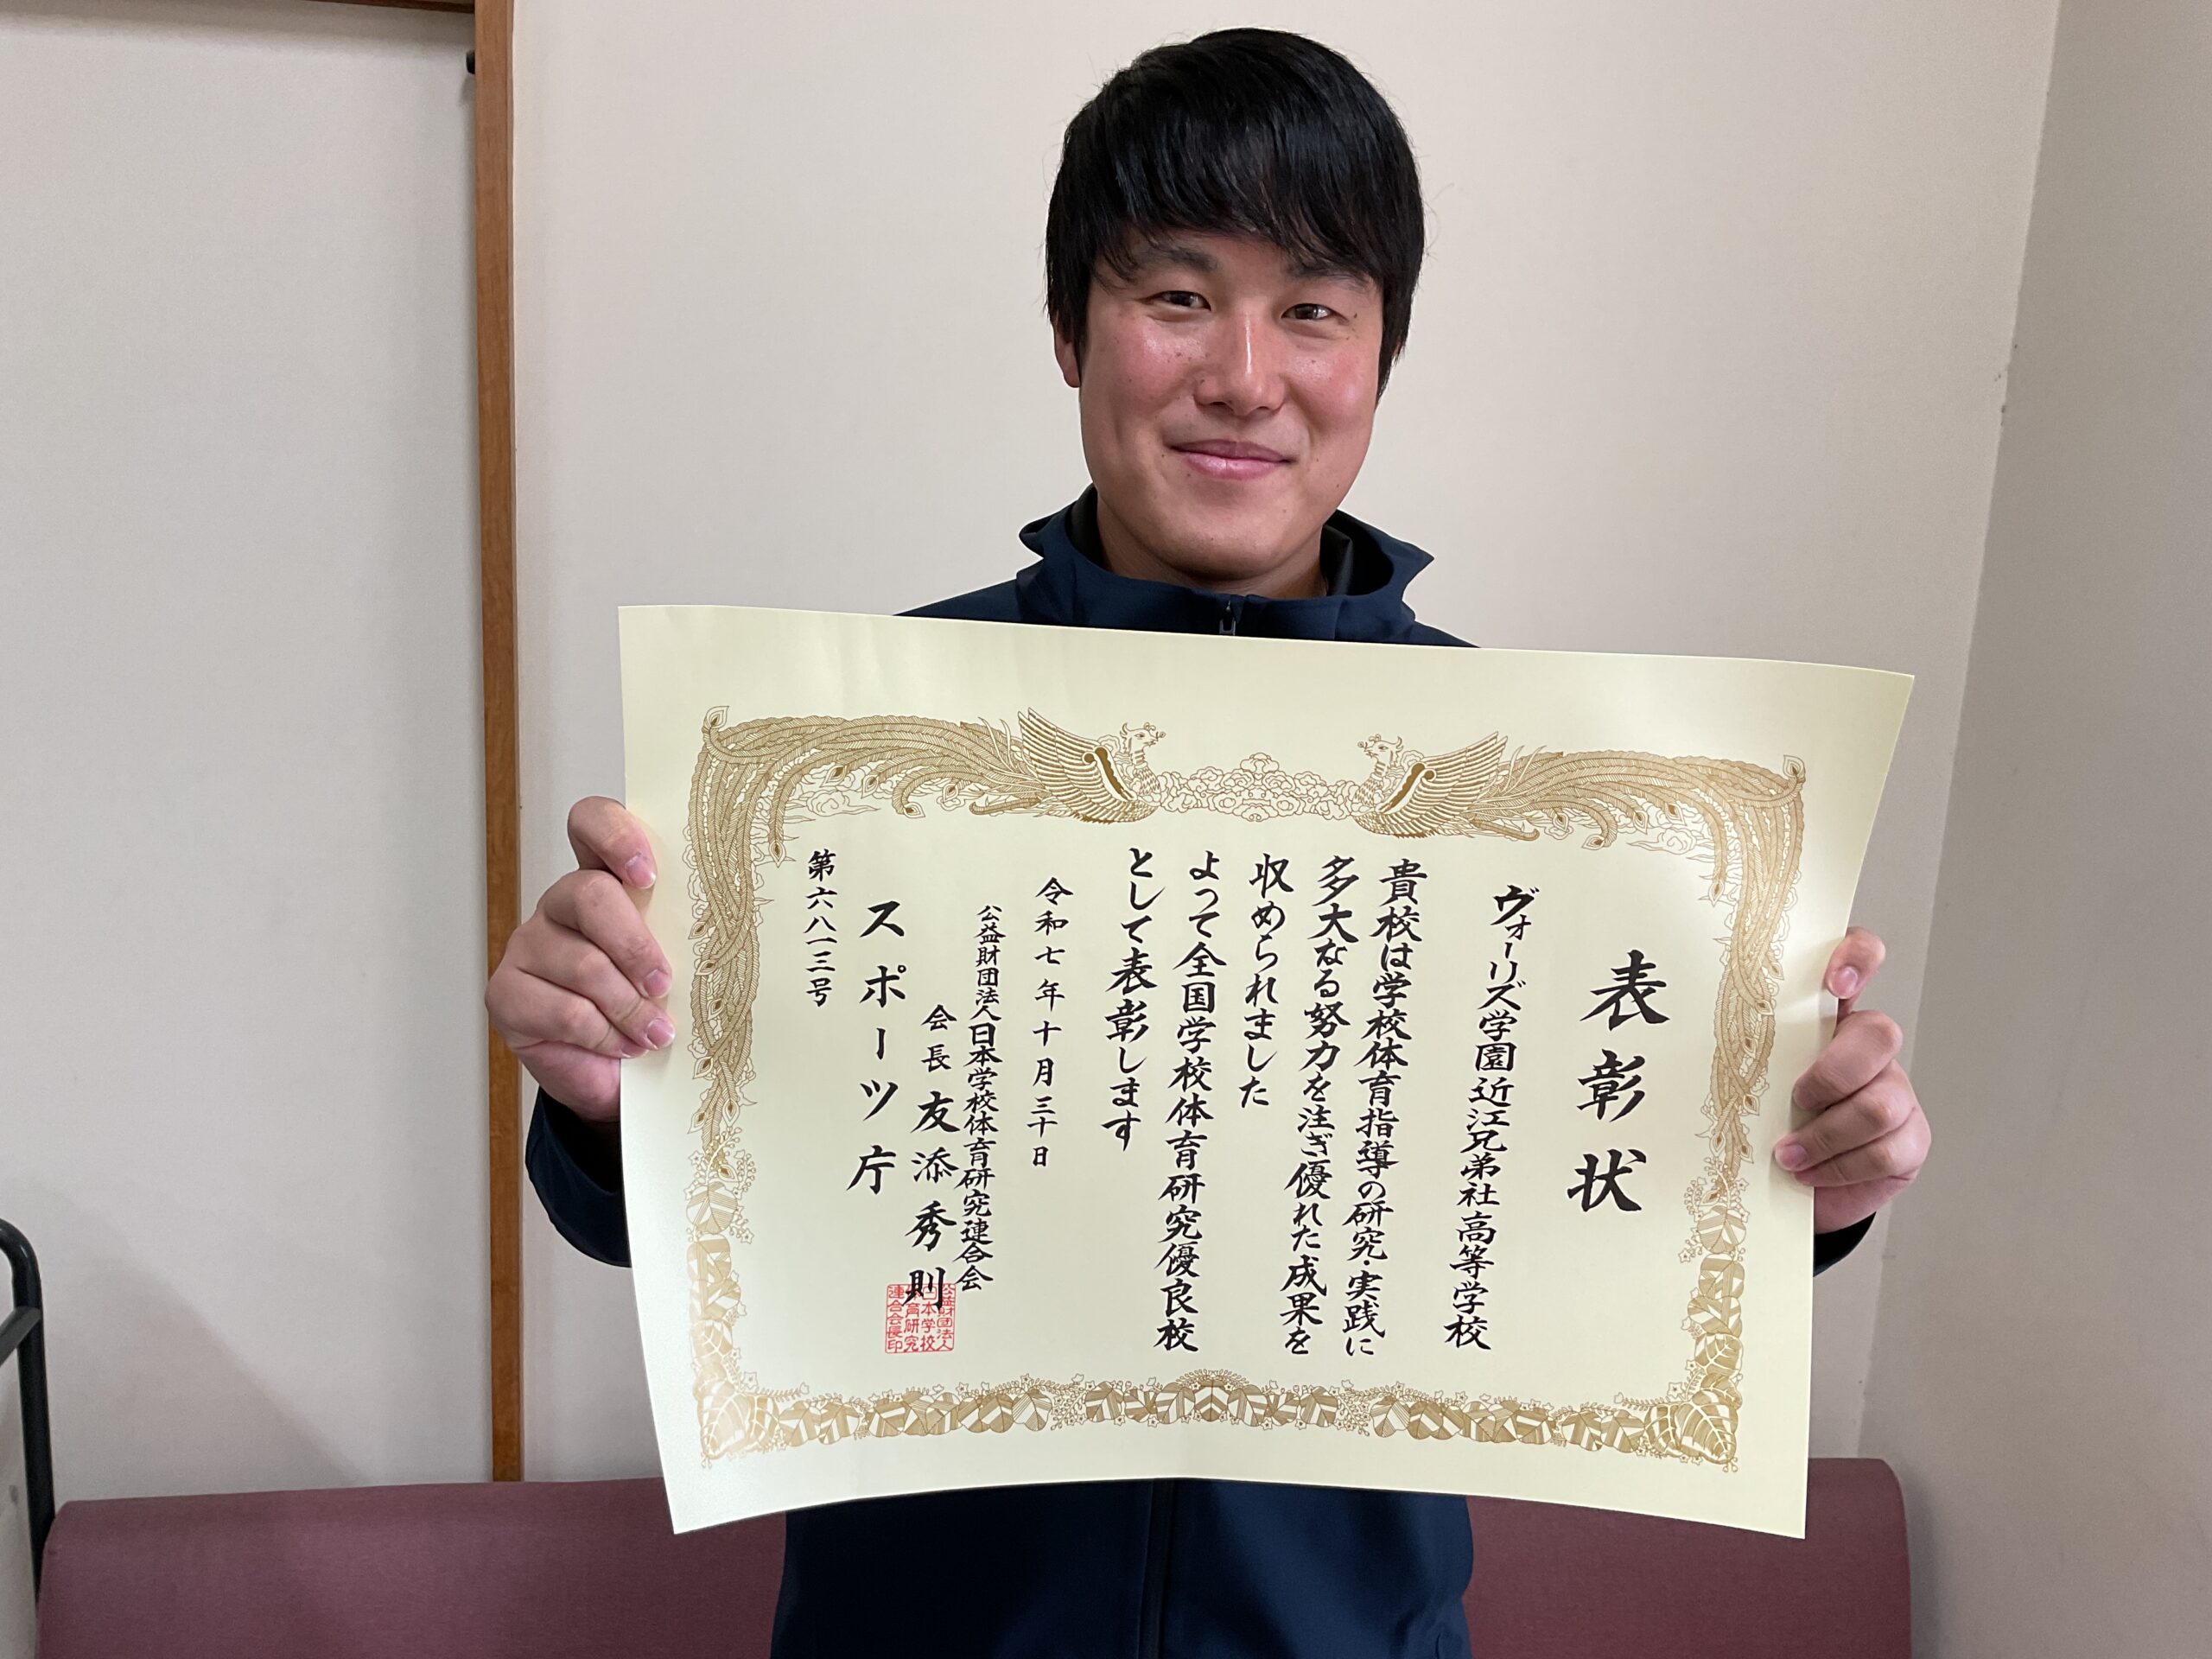 表彰状
ヴォーリズ学園近江兄弟社高等学校
貴校は学校体育指導の研究・実践に
多大なる努力を注ぎ優れた成果を
収められました
よって全国学校体育研究優良校
として表彰します
令和七年十月三十日
公益財団法人日本学校体育研究連合会
会長 友添秀則
公益財団法人
日本学校
体育研究
連合会長印
スポーツ庁
第六八一三号